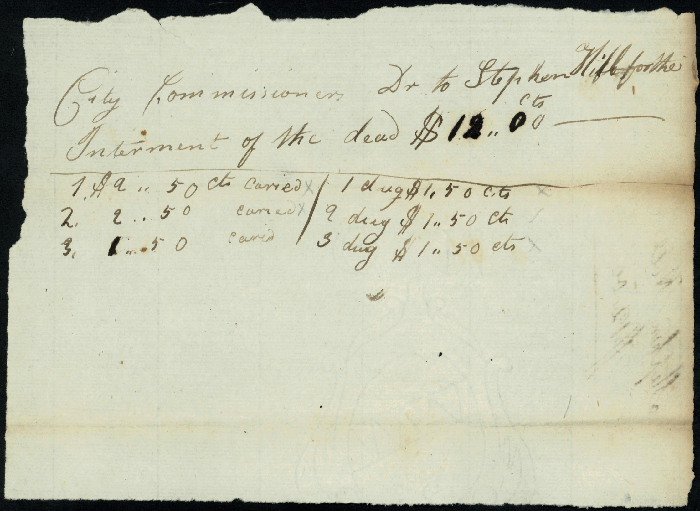 City Commissioners Dr to Stephen Hill for the
Interment of the dead $12,,00 cts
1. $2 ,, 50 cts caried x / 1 dug $1,,50 cts x
2. 2 ,, 50 caried x / 2 dug $1,,50 cts x
3. 1 ,, 50 caried / 3 dug $1,,50 cts x